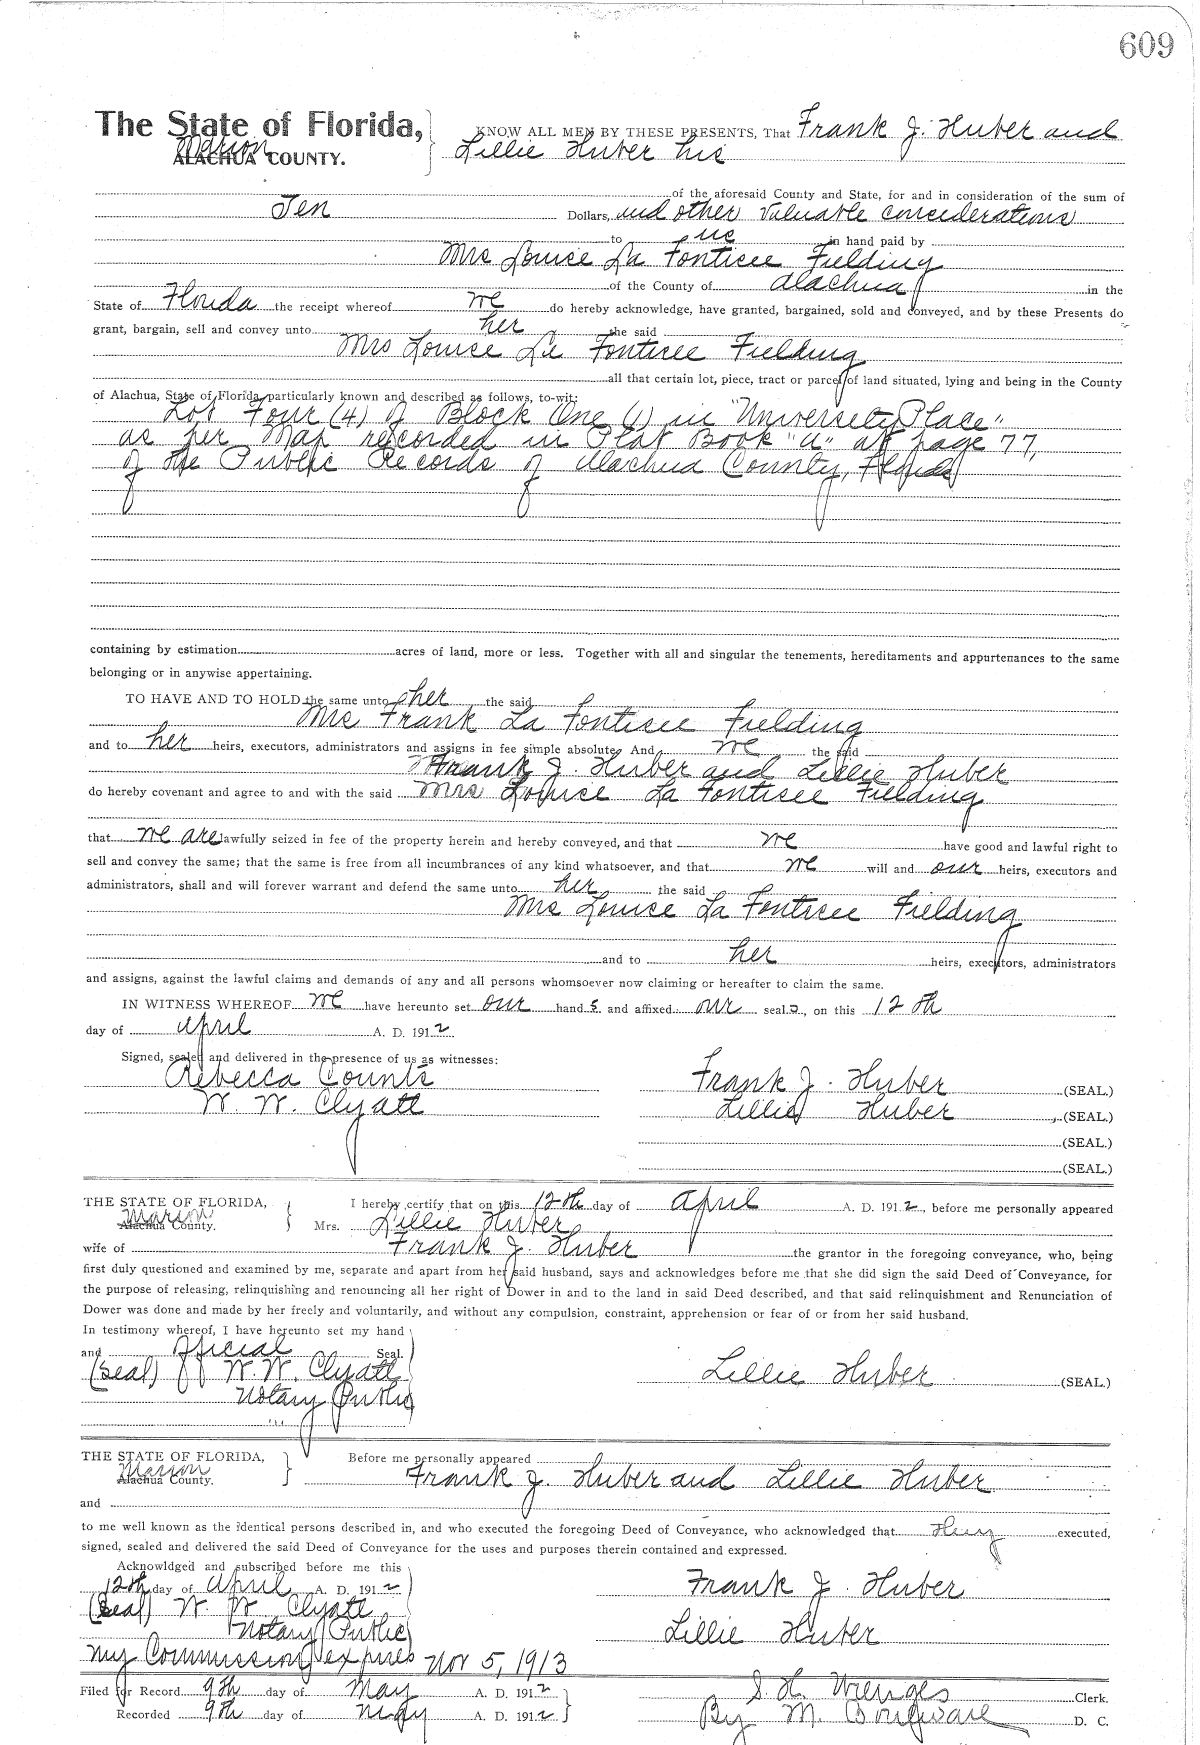 609
The State of Florida,
Marion
ALACHUA COUNTY.
KNOW ALL MEN BY THESE PRESENTS, That Frank J. Huber and
Lillie Huber his
of the aforesaid County and State, for and in consideration of the sum of
Ten Dollars, and other valuable considerations
to us in hand paid by
Mrs Louise La Fontisee Fielding
of the County of Alachua in the
State of Florida the receipt whereof we do hereby acknowledge, have granted, bargained, sold and conveyed, and by these Presents do
grant, bargain, sell and convey unto her the said
Mrs Louise La Fontisee Fielding
all that certain lot, piece, tract or parcel of land situated, lying and being in the County
of Alachua, State of Florida, particularly known and described as follows, to-wit:
Lot Four (4) of Block One (1) in "University Place"
as per Map recorded in Plat Book "A" at page 77,
of the Public Records of Alachua County, Florida
containing by estimation acres of land, more or less. Together with all and singular the tenements, hereditaments and appurtenances to the same
belonging or in anywise appertaining.
TO HAVE AND TO HOLD the same unto her the said
Mrs Frank La Fontisee Fielding
and to her heirs, executors, administrators and assigns in fee simple absolute. And we the said
Frank J. Huber and Lillie Huber
do hereby covenant and agree to and with the said Mrs Louise La Fontisee Fielding
that we are lawfully seized in fee of the property herein and hereby conveyed, and that we have good and lawful right to
sell and convey the same; that the same is free from all incumbrances of any kind whatsoever, and that we will and our heirs, executors and
administrators, shall and will forever warrant and defend the same unto her the said
Mrs Louise La Fontisee Fielding
and to her heirs, executors, administrators
and assigns, against the lawful claims and demands of any and all persons whomsoever now claiming or hereafter to claim the same.
IN WITNESS WHEREOF we have hereunto set our hand s and affixed our seal s, on this 12th
day of April A. D. 1912
Signed, sealed and delivered in the presence of us as witnesses:
Rebecca Counts Frank J. Huber (SEAL.)
W. W. Clyatt Lillie Huber (SEAL.)
(SEAL.)
(SEAL.)
THE STATE OF FLORIDA,
Marion
Alachua County.
I hereby certify that on this 12th day of April A. D. 1912, before me personally appeared
Mrs. Lillie Huber
wife of Frank J. Huber the grantor in the foregoing conveyance, who, being
first duly questioned and examined by me, separate and apart from her said husband, says and acknowledges before me that she did sign the said Deed of Conveyance, for
the purpose of releasing, relinquishing and renouncing all her right of Dower in and to the land in said Deed described, and that said relinquishment and Renunciation of
Dower was done and made by her freely and voluntarily, and without any compulsion, constraint, apprehension or fear of or from her said husband.
In testimony whereof, I have hereunto set my hand
and official Seal.
(Seal) W. W. Clyatt Lillie Huber (SEAL.)
Notary Public
THE STATE OF FLORIDA,
Marion
Alachua County.
Before me personally appeared
Frank J. Huber and Lillie Huber
and
to me well known as the identical persons described in, and who executed the foregoing Deed of Conveyance, who acknowledged that they executed,
signed, sealed and delivered the said Deed of Conveyance for the uses and purposes therein contained and expressed.
Acknowldged and subscribed before me this
12th day of April A. D. 1912 Frank J. Huber
(Seal) W. W. Clyatt
Notary Public Lillie Huber
My Commission expires Nov 5, 1913
Filed for Record 9th day of May A. D. 1912 S. H. Wienges Clerk.
Recorded 9th day of May A. D. 1912 By M. D. C.